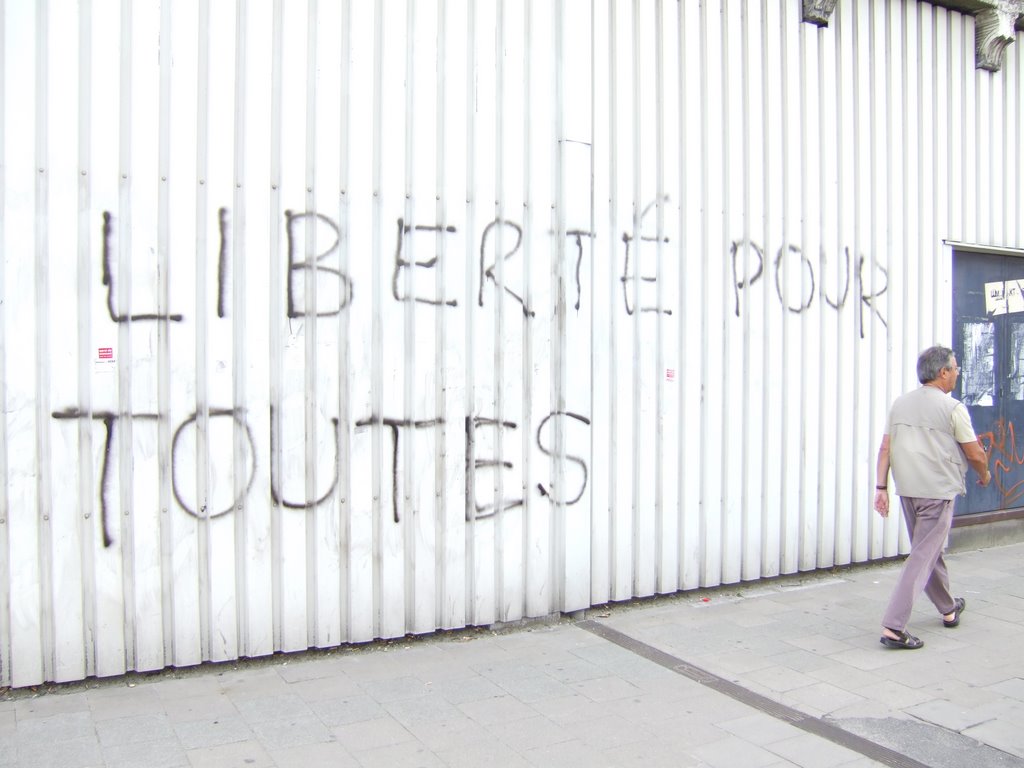 LIBERTÉ POUR
TOUTES